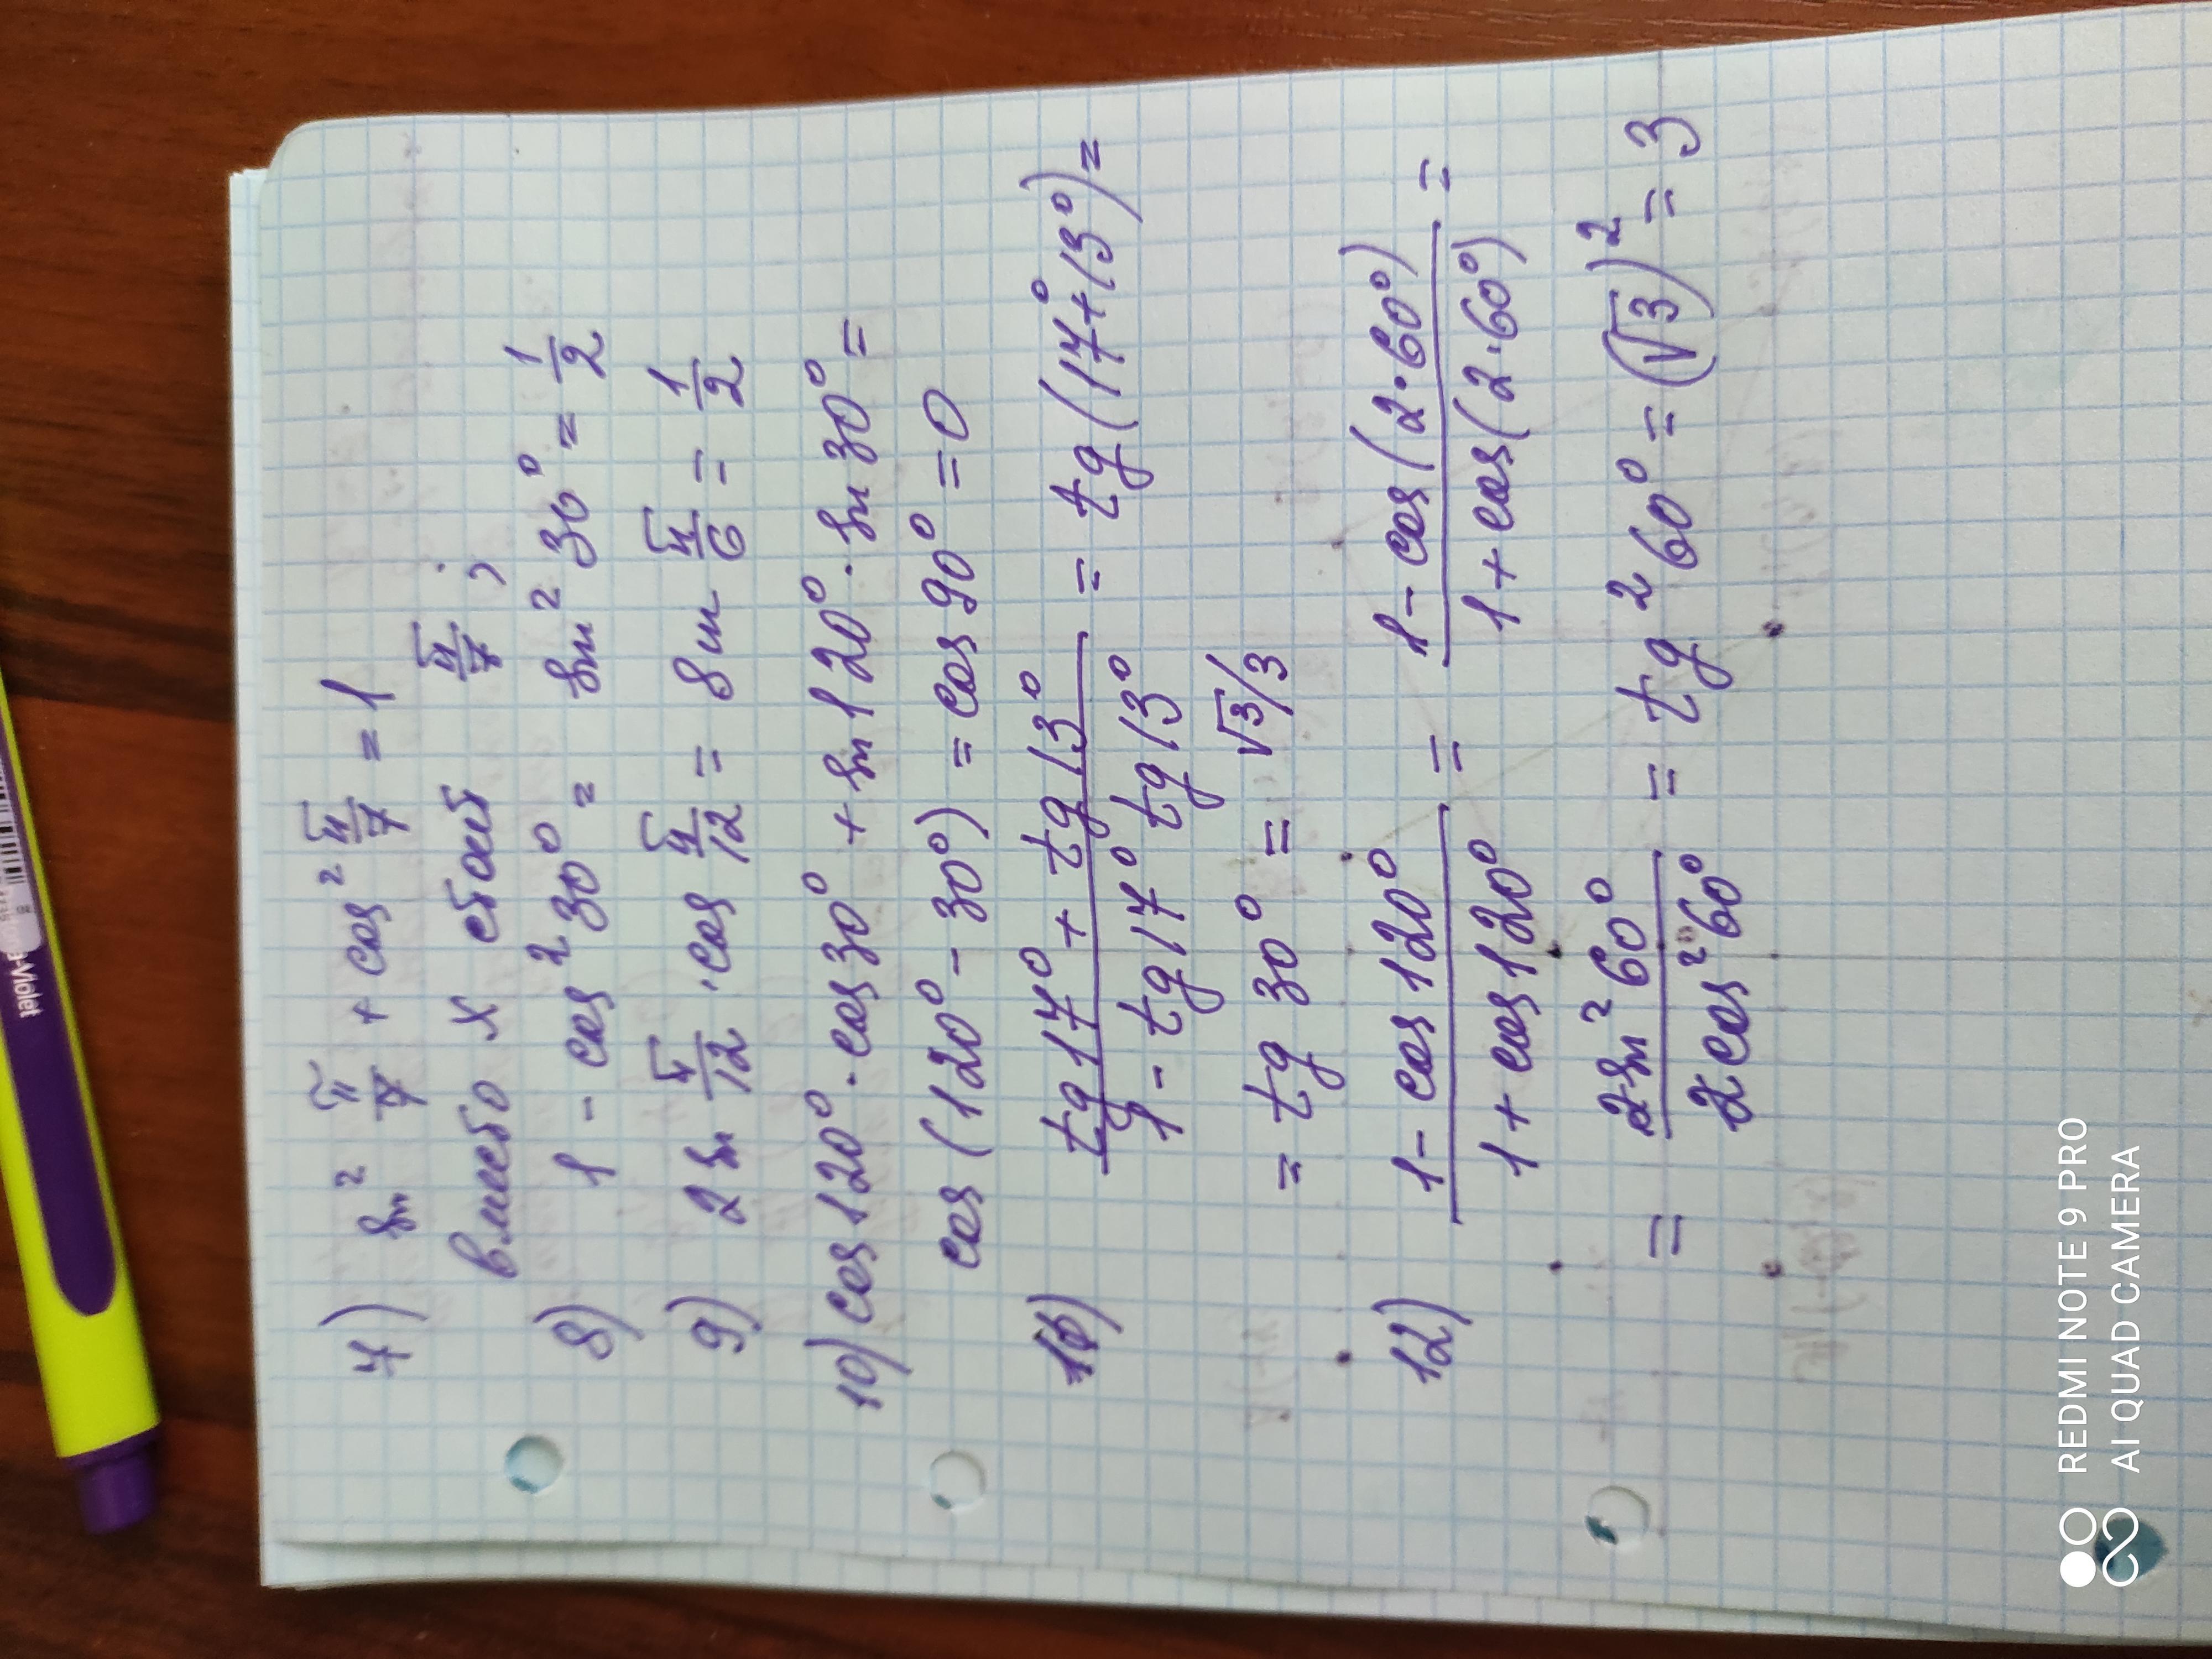 7) sin² π/7 + cos² π/7 = 1
вместо x стоит π/7;
8) 1 - cos² 30° = sin² 30° = 1/2
9) 2 sin π/12 · cos π/12 = sin π/6 = 1/2
10) cos 120° · cos 30° + sin 120° · sin 30° =
cos (120° - 30°) = cos 90° = 0
11) (tg 17° + tg 13°)/(1 - tg 17° tg 13°) = tg (17° + 13°) =
= tg 30° = √3/3
12) (1 - cos 120°)/(1 + cos 120°) = (1 - cos (2·60°))/(1 + cos (2·60°)) =
= (2 sin² 60°)/(2 cos² 60°) = tg² 60° = (√3)² = 3
-Violet
REDMI NOTE 9 PRO
AI QUAD CAMERA